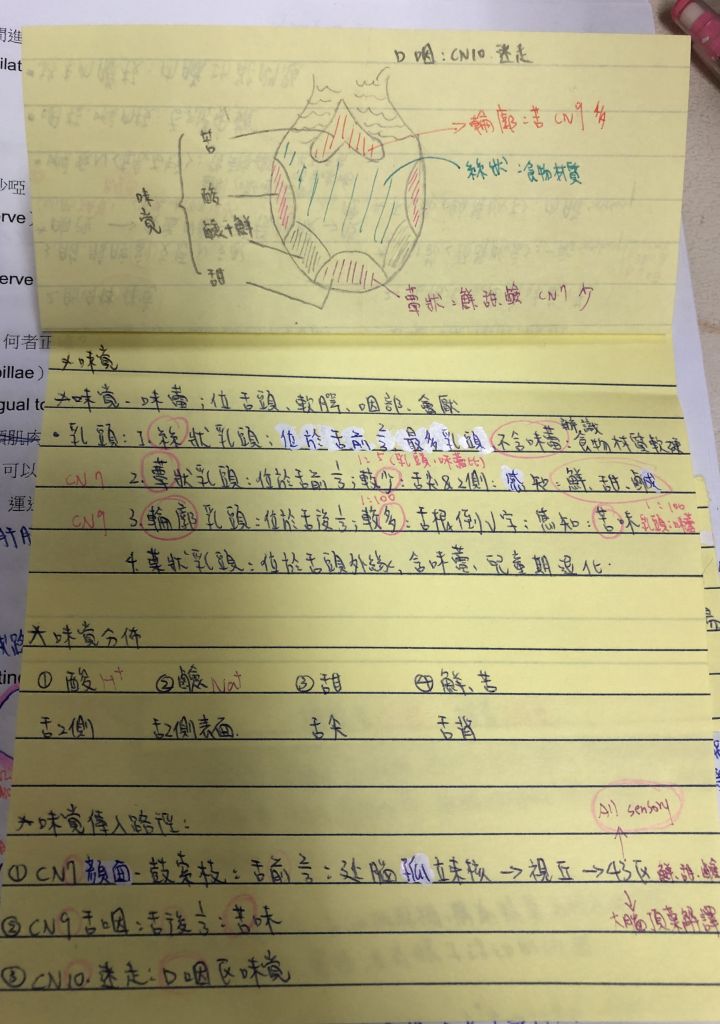 口咽:CN10.迷走
苦
輪廓:苦 CN9 多
絲狀:食物材質
味覺
酸
鹹+鮮
甜
蕈狀:鮮.甜.鹼 CN7 少
*味覺
*味覺-味蕾;位舌頭、軟腭、咽部、會厭
辨識
•乳頭:1.絲狀乳頭:位於舌前2/3,最多乳頭,不含味蕾:食物材質軟硬
1:5(乳頭:味蕾比)
CN7 2.蕈狀乳頭:位於舌前;較少;舌尖&2側;感知:鮮、甜、鹹
1:100
CN9 3.輪廓乳頭:位於舌後1/3;較多;舌根倒V字;感知:苦味 1:100
乳頭:味蕾
4.葉狀乳頭:位於舌頭外緣,含味蕾、兒童期退化.
*味覺分佈
① 酸H+ ②鹼Na+ ③甜 ④鮮、苦
舌2側 舌2側表面. 舌尖 舌背
All sensory
*味覺傳入路徑:
①CN7顏面-鼓索枝:舌前2/3:延腦孤立束核→視丘→43區 鮮.甜.鹼
②CN9舌咽:舌後1/3:苦味
大腦頂葉解譯
③CN10.迷走:口咽區味覺
何者正
可以